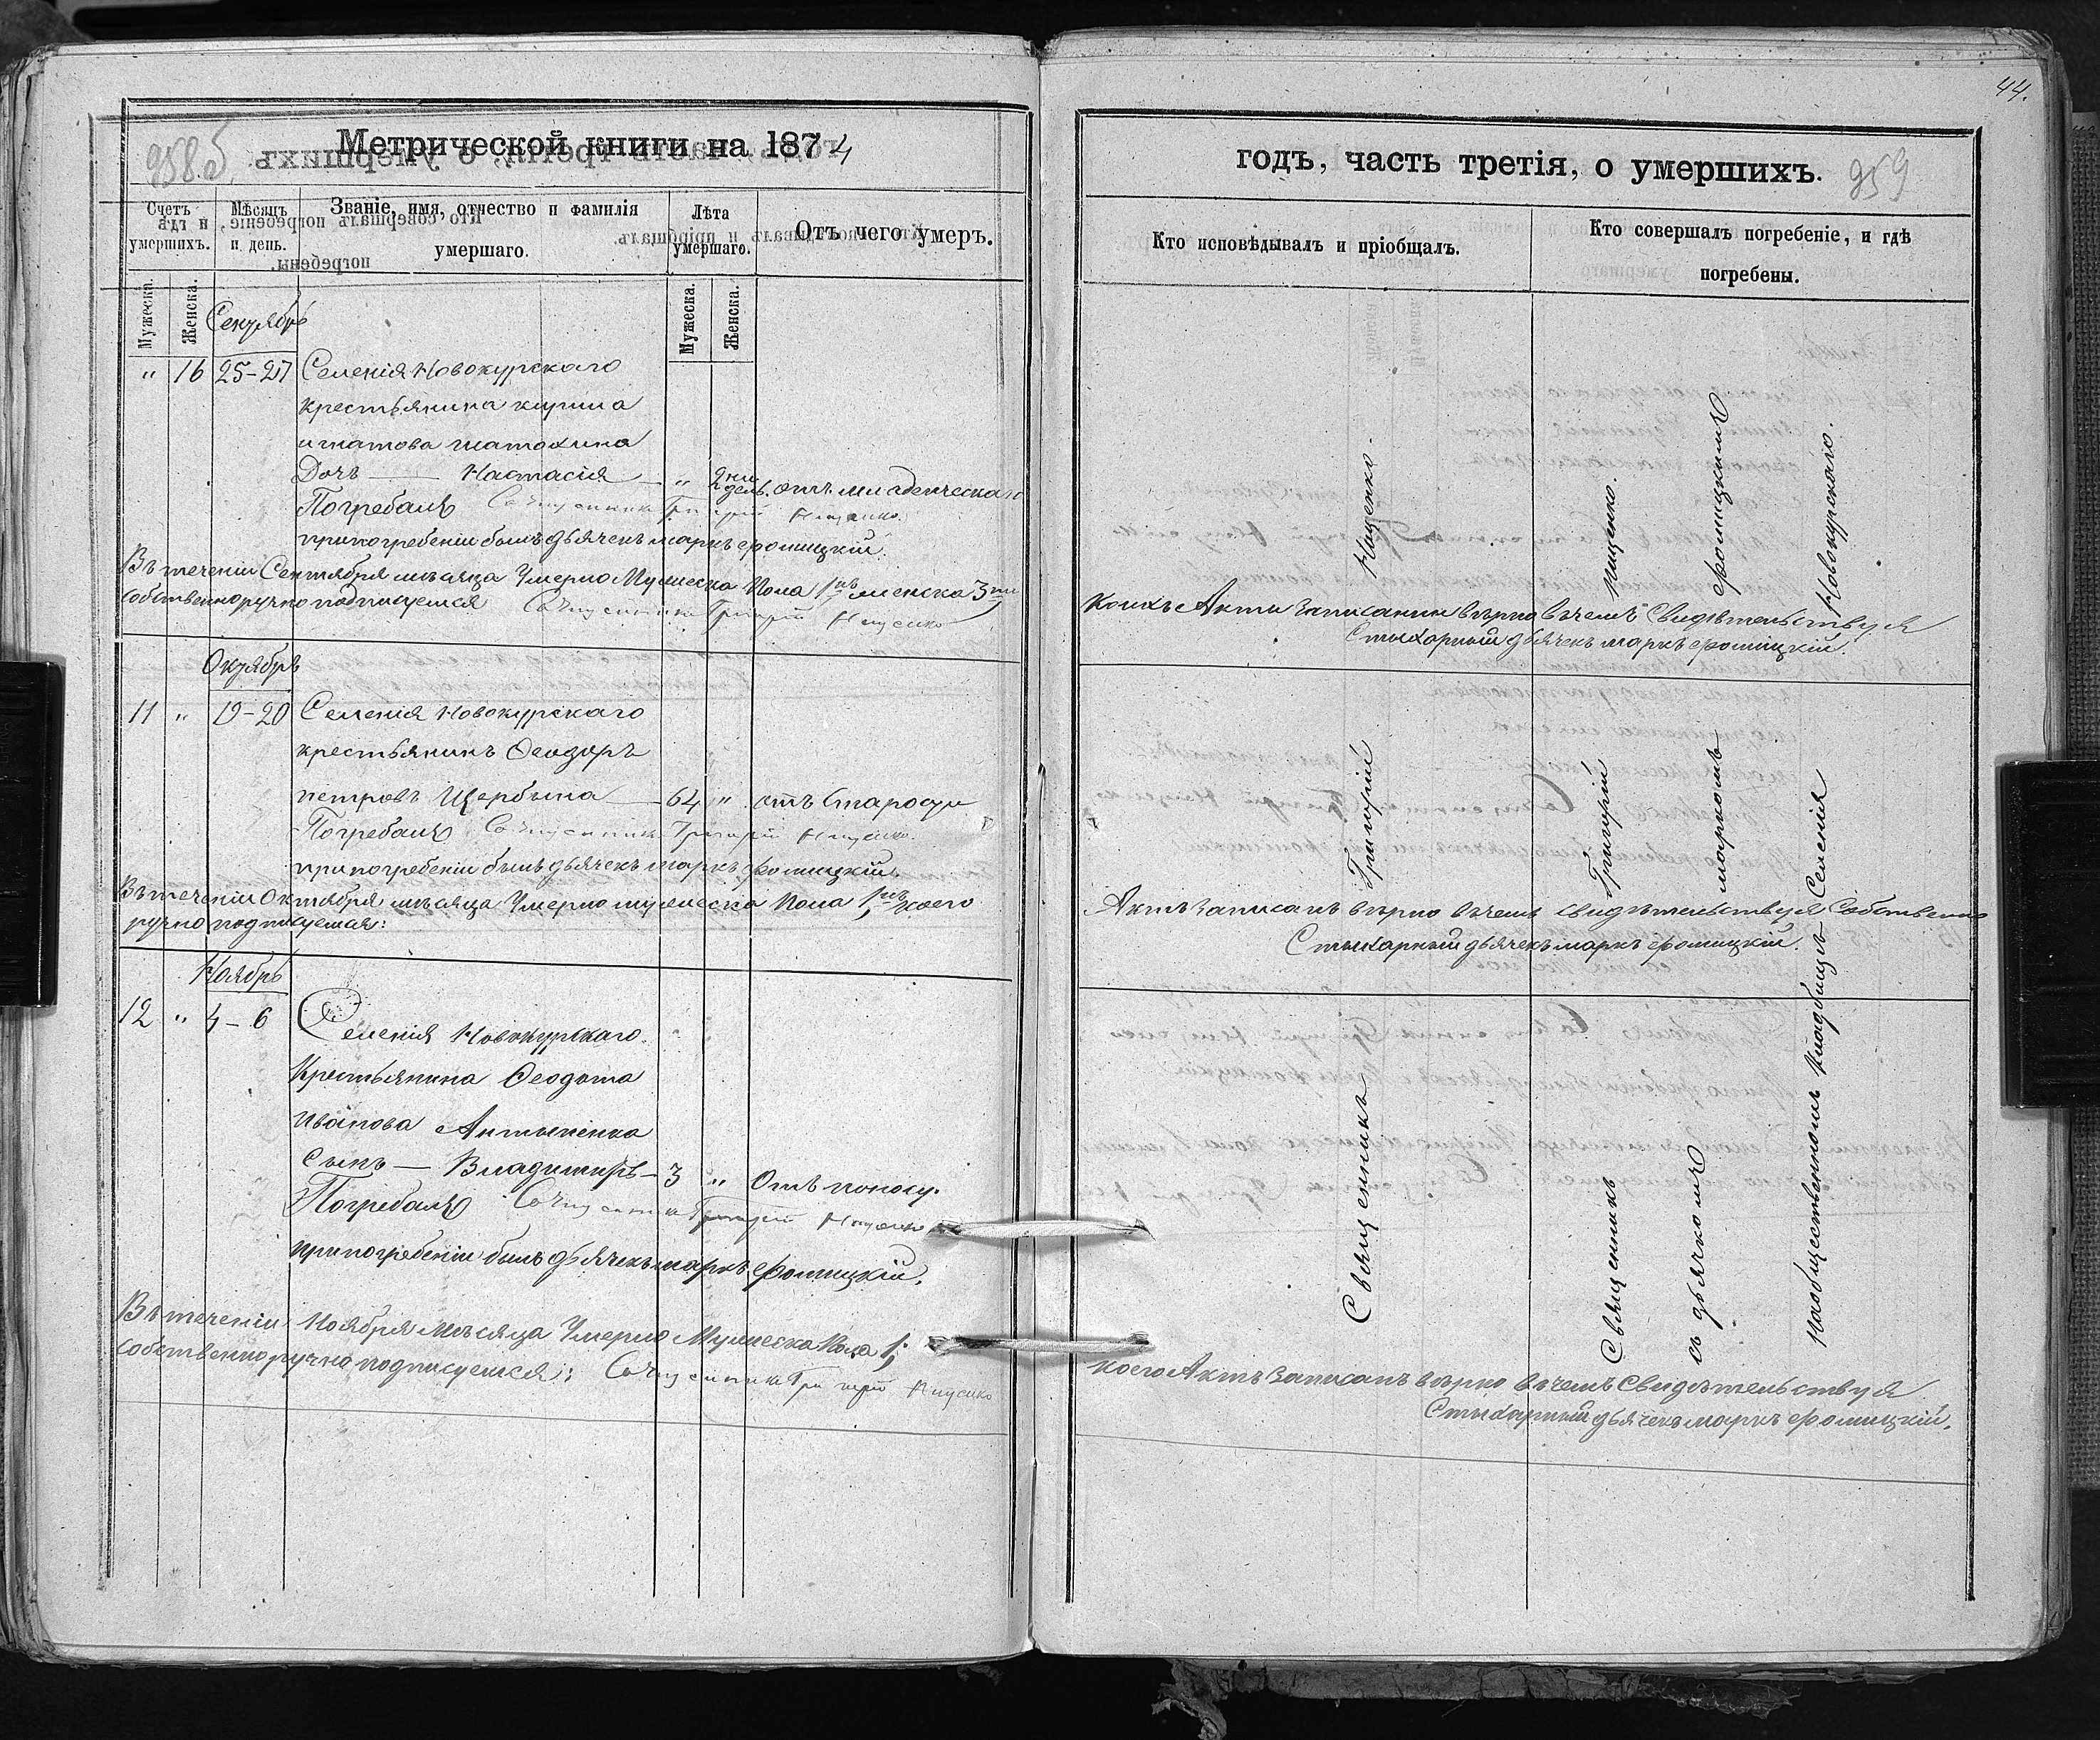 958.об.
Метрической книги на 1874
Счетъ умершихъ.
Мѣсяцъ и день.
Званіе, имя, отчество и фамилія умершаго.
Лѣта умершаго.
Отъ чего умеръ.
Мужеска.
Женска.
Мужеска.
Женска.
" 16 25-27 Селенія Новокурскаго
крестьянина
игнатова шатохина
Дочь — Настасія — " 2 не дель. отъ младенческаго
Погребалъ Священникъ Григорій Нищенко
при погребеніи былъ дьячекъ маркъ фомицкій.
Въ теченіи Сентября мѣсяца Умерло Мужеска Пола 1нъ женска 3ти
собственноручно подписуемся Священникъ Григорій Нищенко
Октябрь
11 " 19-20 Селенія Новокурскаго
крестьянинъ Ѳеодоръ
петровъ Щербина — 64 " отъ Старости
Погребалъ Священникъ Григорій Нищенко.
при погребеніи былъ дьячекъ маркъ фомицкій
Въ теченіи Октября мѣсяца Умерло мужеска Пола 1нъ коего
ручно подписуемся:
Ноябрь
12 " 4-6 Селенія Новокурскаго.
Крестьянина Ѳеодота
иванова Антипенка
Сынъ — Владимиръ — 3 " Отъ поносу.
Погребалъ Священникъ Григорій Нищенко
при погребеніи былъ дьячекъ маркъ фомицкій.
Въ теченіи Ноября мѣсяца Умерло Мужеска Пола 1;
собственноручно подписуемся: Священникъ Григорій Нищенко
44.
годъ, часть третія, о умершихъ. 959
Кто исповѣдывалъ и пріобщалъ.
Кто совершалъ погребеніе, и гдѣ погребены.
Священникъ Григорій Нищенко.
Священникъ Григорій Нищенко.
съ дьячкомъ маркомъ фомицкимъ
на общественномъ кладбищѣ Селенія Новокурскаго.
коихъ Акти записанни вѣрно въ чемъ Свидѣтельствуя
Стихарный дьячекъ маркъ фомицкій.
Актъ записанъ вѣрно въ чемъ свидѣтельствуя Собственно
Стихарный дьячекъ маркъ фомицкій.
коего Актъ записанъ вѣрно въ чемъ Свидѣтельствуя
Стихарный дьячекъ маркъ фомицкій.